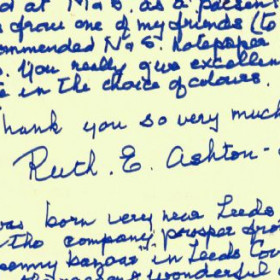 at M&S. as a present
from one of my friends (to
recommended M&S. Notepaper
You really give excellen
in the choice of colours.
Thank you so very much
Ruth. E. Ashton-
was born very near Leeds
the company prosper fro
penny bazaar in Leeds Co
wonderful